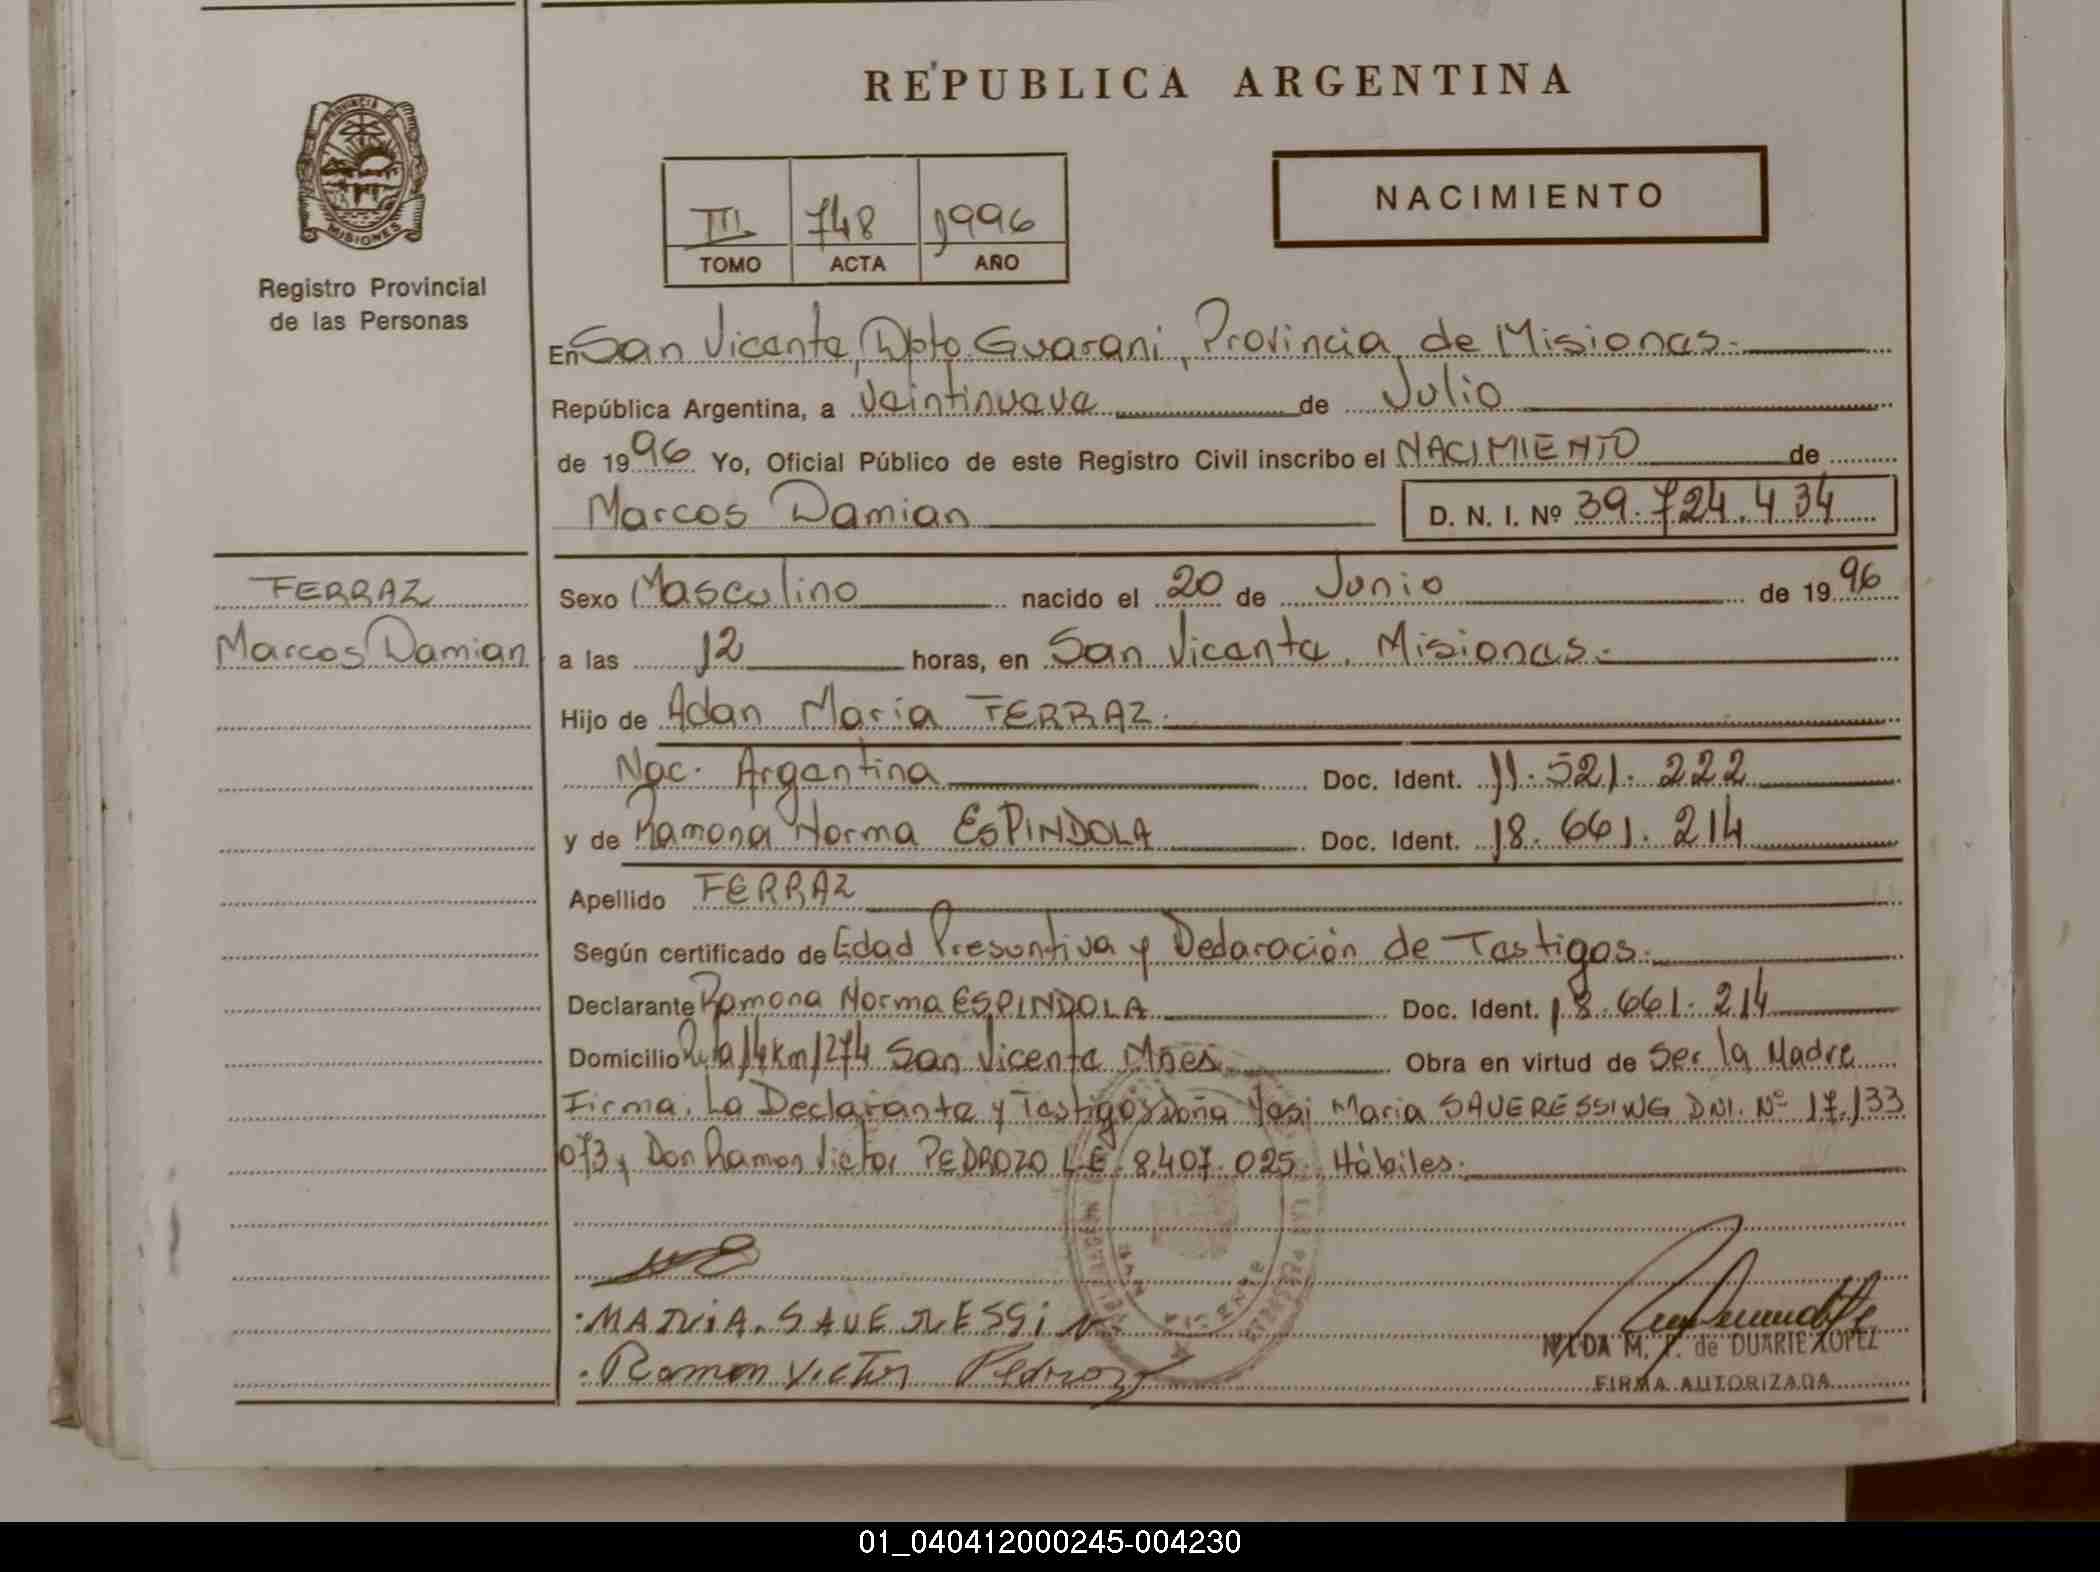 REPUBLICA ARGENTINA
PROVINCIA DE
MISIONES
Registro Provincial
de las Personas
III 748 1996
TOMO ACTA AÑO
NACIMIENTO
En San Vicente, Dpto Guarani, Provincia de Misiones.
República Argentina, a Veintinueve de Julio
de 1996 Yo, Oficial Público de este Registro Civil inscribo el NACIMIENTO de
Marcos Damian D. N. I. Nº 39.724.434
FERRAZ
Marcos Damian
Sexo Masculino nacido el 20 de Junio de 1996
a las 12 horas, en San Vicente, Misiones.
Hijo de Adan Maria FERRAZ.
Nac. Argentina Doc. Ident. 11.521.222
y de Ramona Norma ESPINDOLA Doc. Ident. 18.661.214
Apellido FERRAZ
Según certificado de Edad Presuntiva y Declaración de Testigos.
Declarante Ramona Norma ESPINDOLA Doc. Ident. 18.661.214
Domicilio Ruta 14 km 1274 San Vicente Mnes Obra en virtud de Ser la Madre
Firma. La Declarante y Testigos doña Maria SAUERESSING DNI. Nº 17.133
073 y Don Ramon Victor PEDROZO L.E. 8.407.025. Hábiles.
MARIA. SAUERESSiN
Ramon Victor Pedrozo
NILDA M. P. de DUARTE LOPEZ
FIRMA AUTORIZADA
VICENTE
01_040412000245-004230